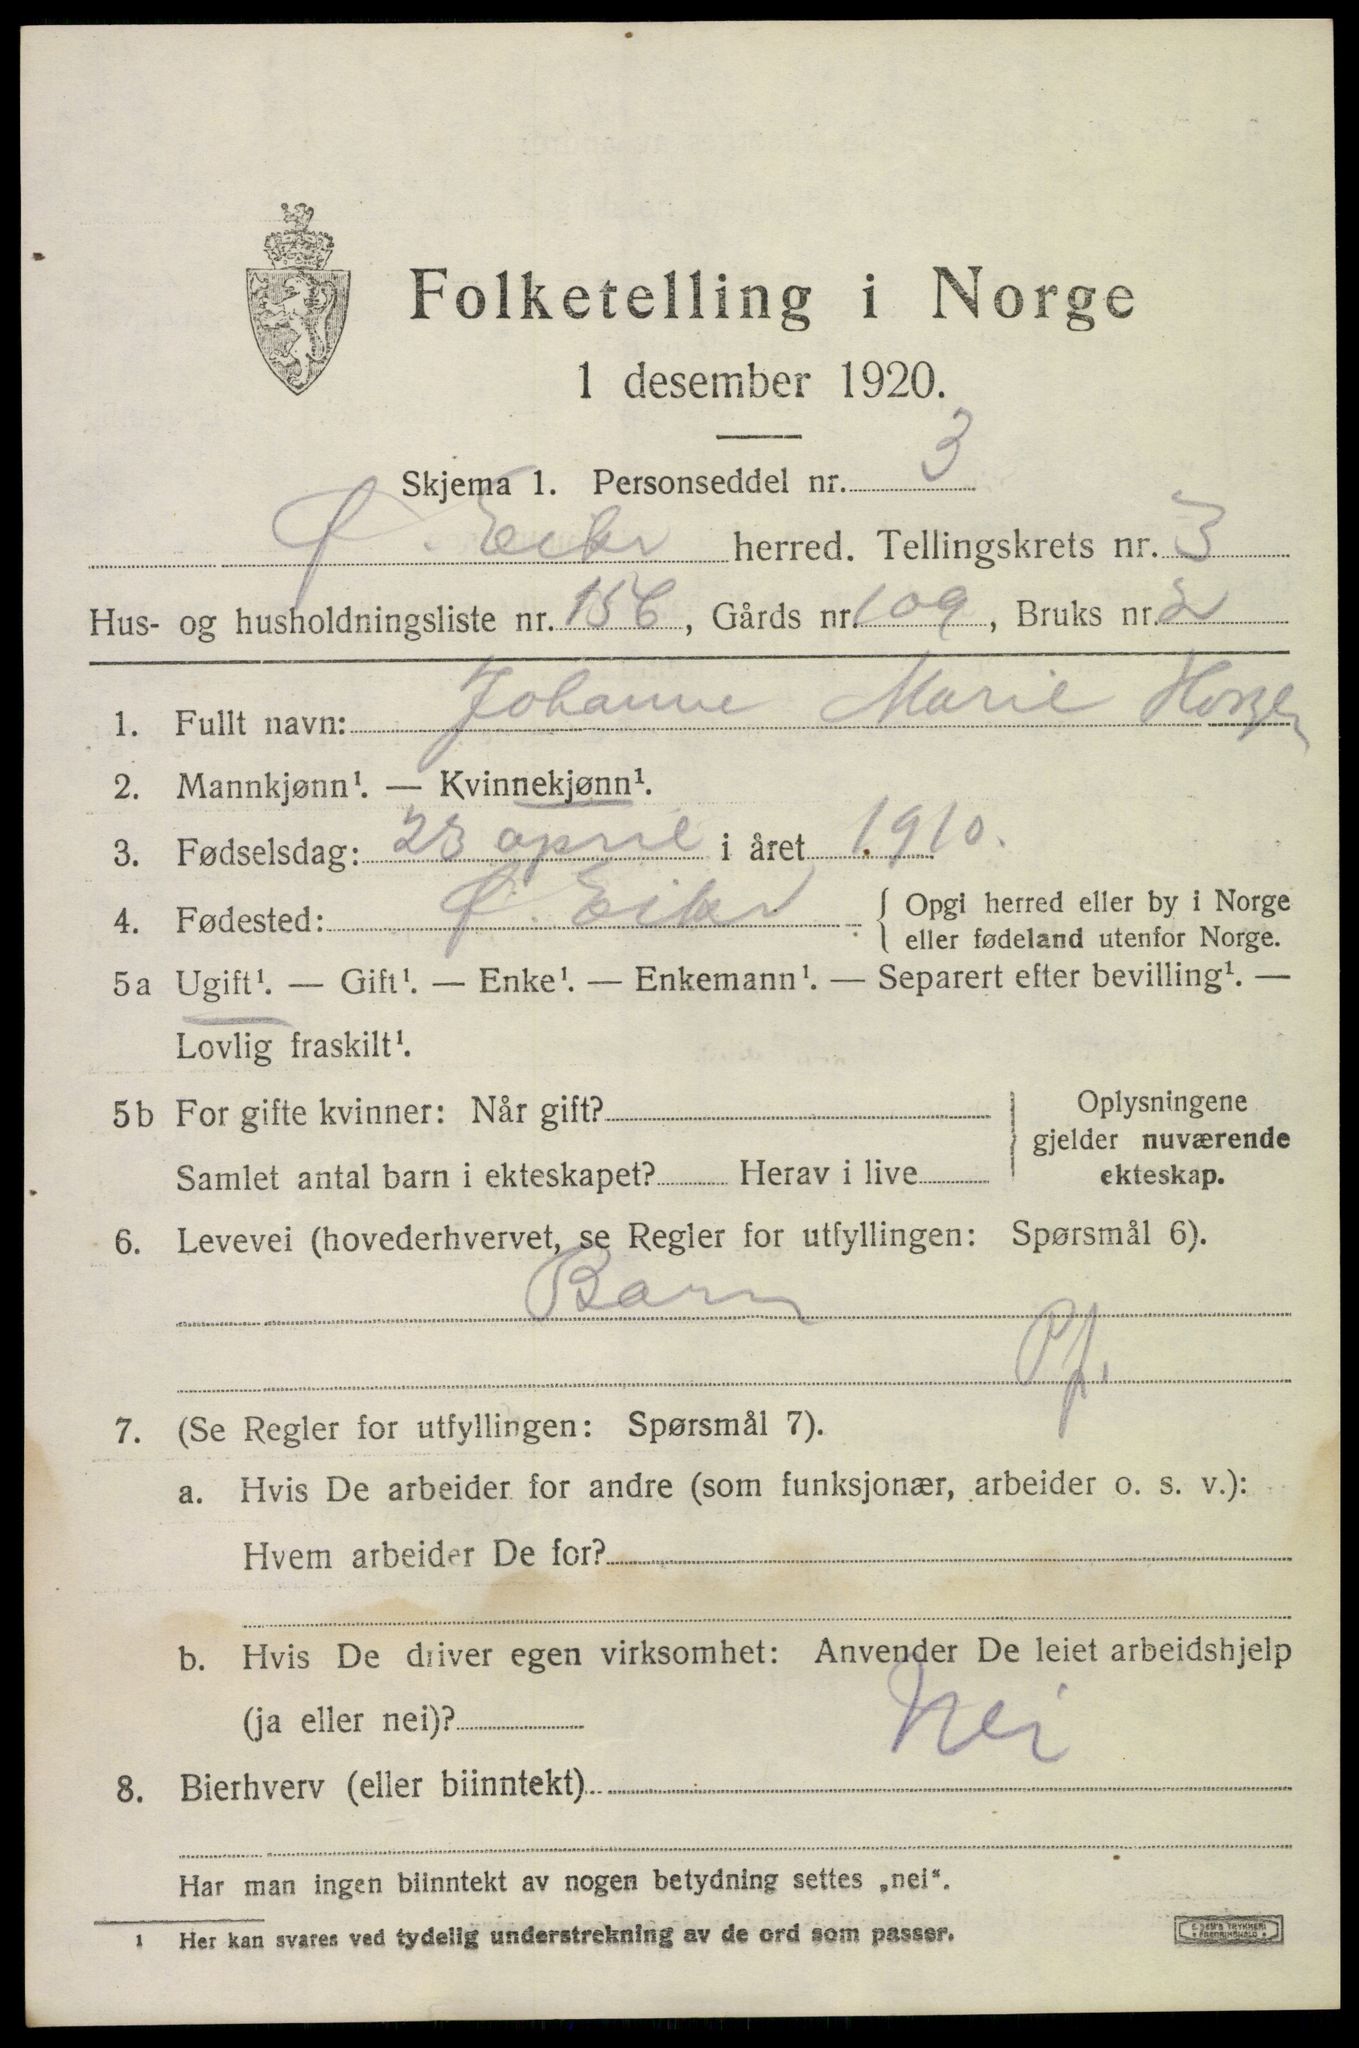 Folketelling i Norge
1 desember 1920.
Skjema 1. Personseddel nr. 3
Ø. Eiker herred. Tellingskrets nr. 3
Hus- og husholdningsliste nr. 156, Gårds nr. 109, Bruks nr. 2
1. Fullt navn: Johanne Marie
2. Mannkjønn¹. — Kvinnekjønn¹.
3. Fødselsdag: 23 april i året 1910.
4. Fødested: Ø. Eiker { Opgi herred eller by i Norge
eller fødeland utenfor Norge.
5a Ugift¹. — Gift¹. — Enke¹. — Enkemann¹. — Separert efter bevilling¹. —
Lovlig fraskilt¹.
5b For gifte kvinner: Når gift?
Samlet antal barn i ekteskapet? Herav i live
} Oplysningene
gjelder nuværende
ekteskap.
6. Levevei (hovederhvervet, se Regler for utfyllingen: Spørsmål 6).
Barn
7. (Se Regler for utfyllingen: Spørsmål 7).
a. Hvis De arbeider for andre (som funksjonær, arbeider o. s. v.):
Hvem arbeider De for?
b. Hvis De driver egen virksomhet: Anvender De leiet arbeidshjelp
(ja eller nei)? Nei
8. Bierhverv (eller biinntekt)
Har man ingen biinntekt av nogen betydning settes „nei“.
1 Her kan svares ved tydelig understrekning av de ord som passer.